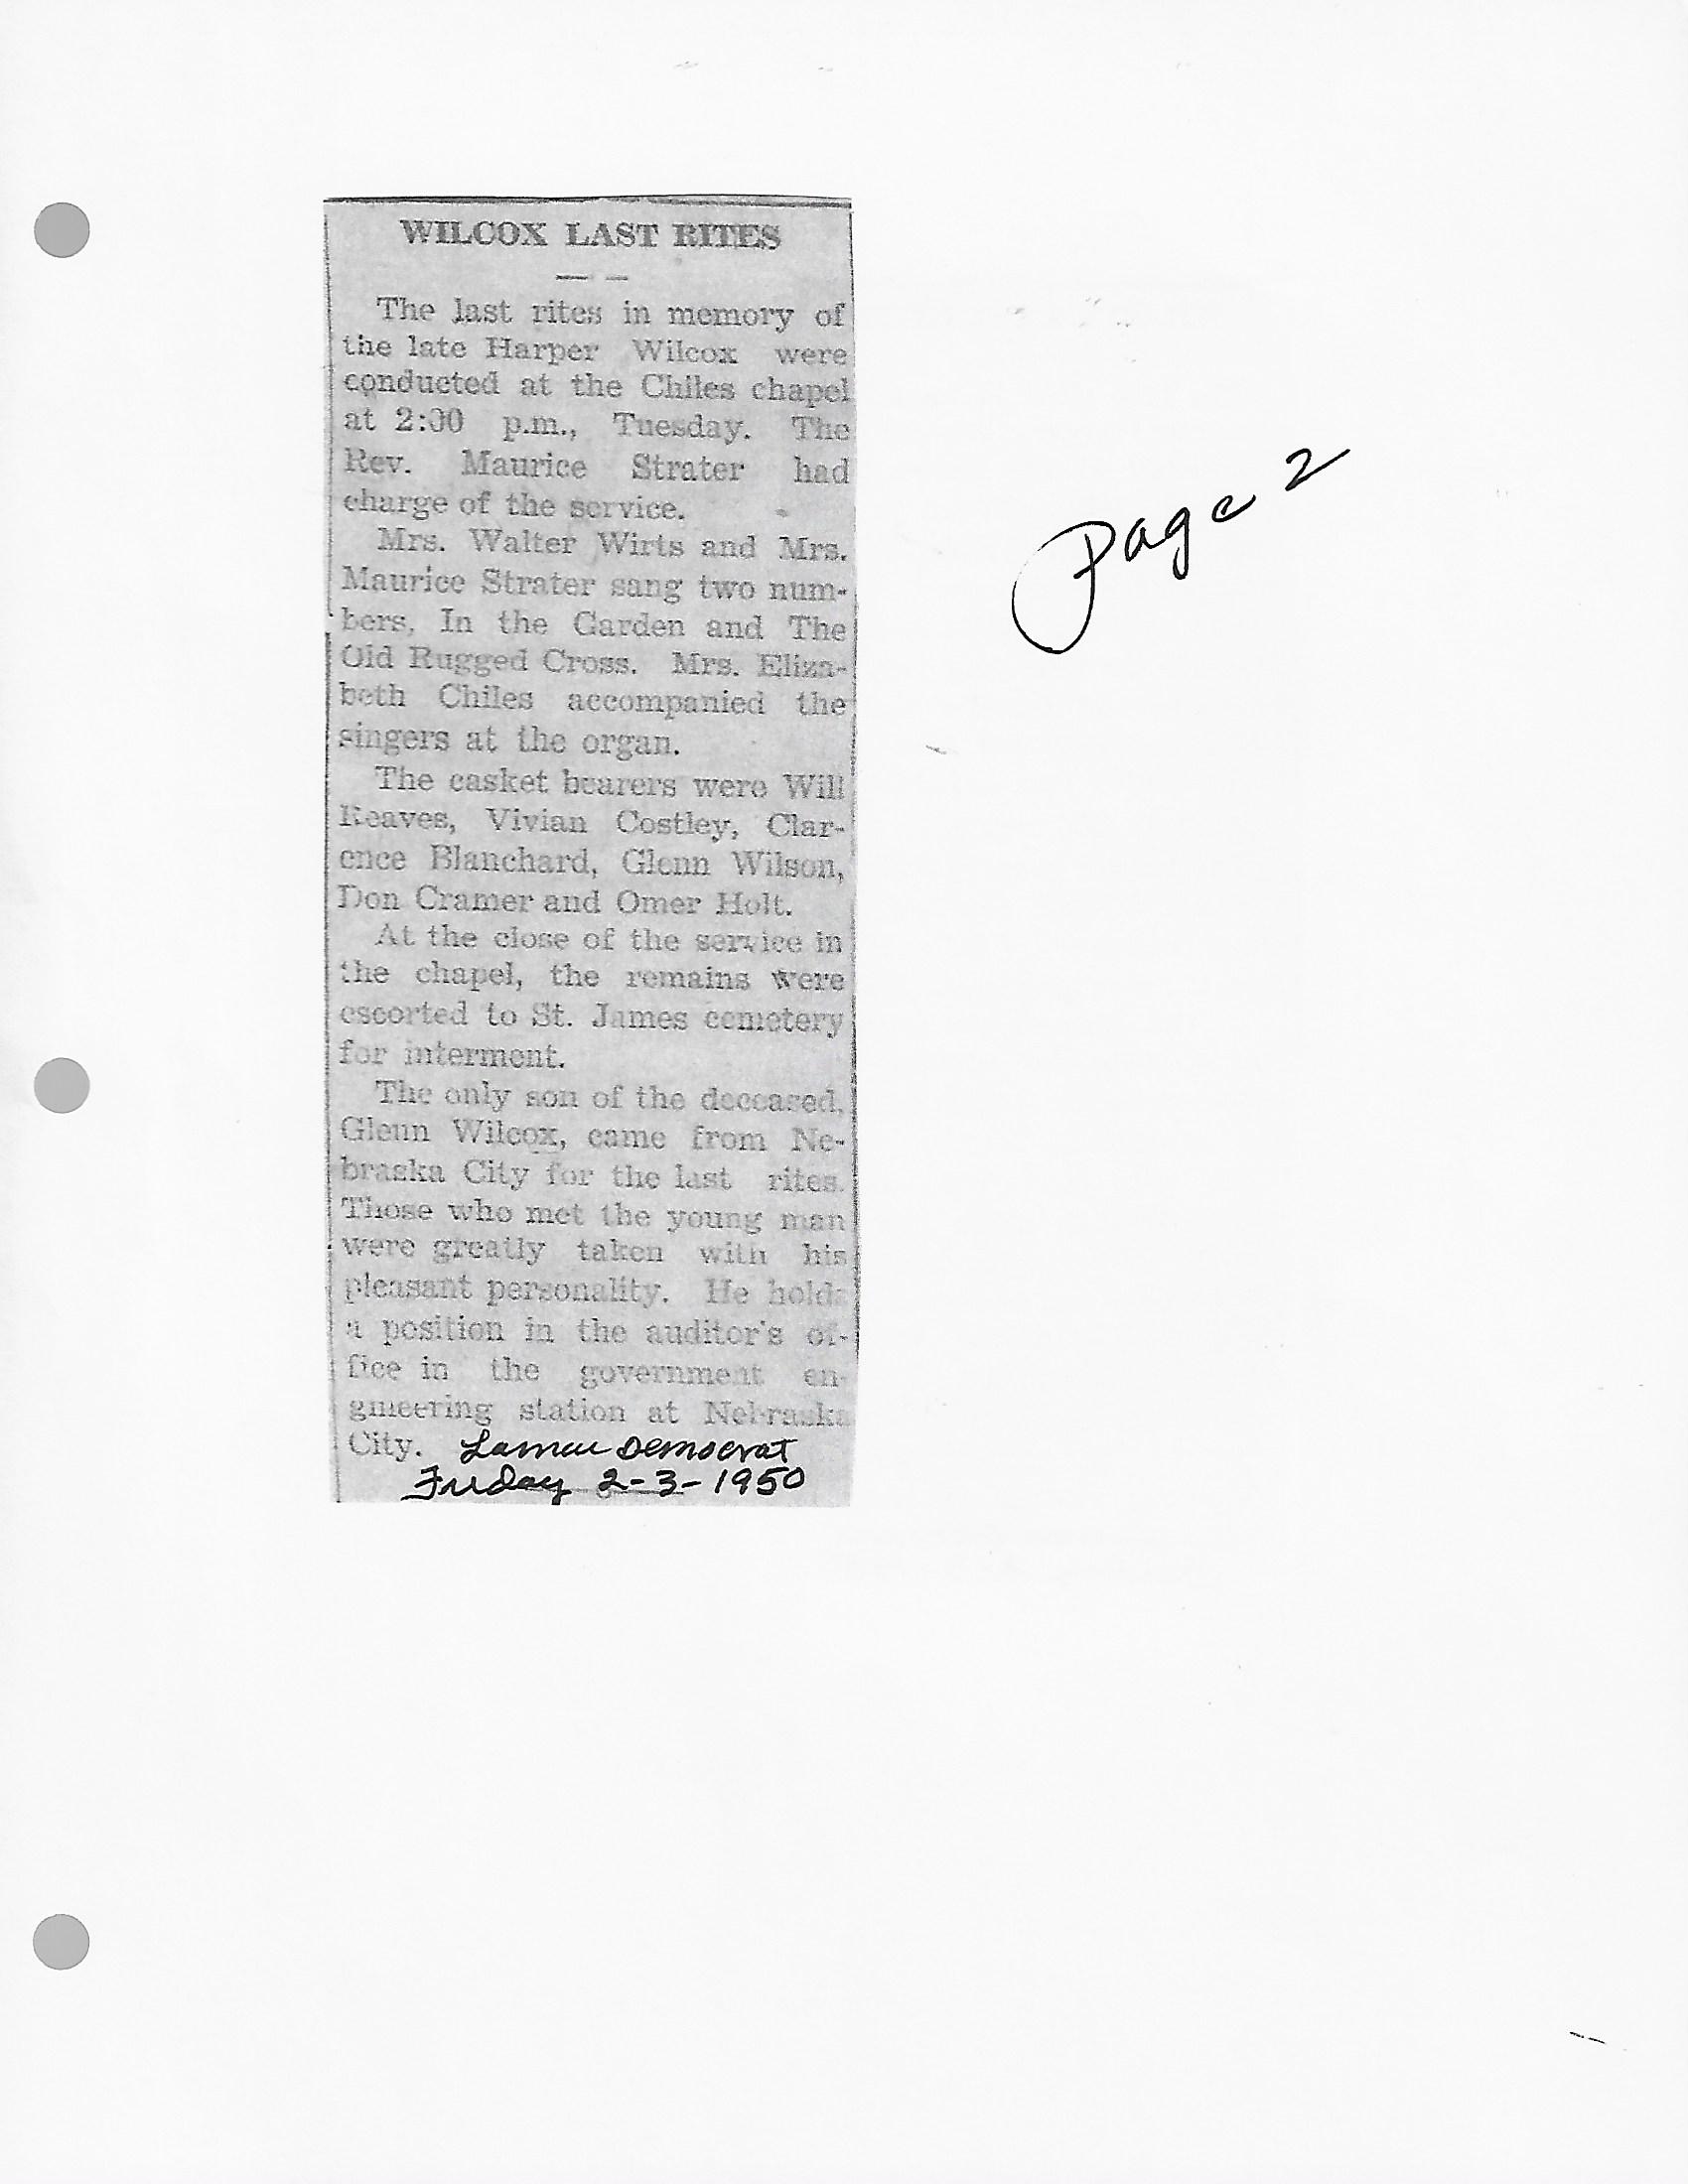 WILCOX LAST RITES
The last rites in memory of
the late Harper Wilcox were
conducted at the Chiles chapel
at 2:00 p.m., Tuesday. The
Rev. Maurice Strater had
charge of the service.
Mrs. Walter Wirts and Mrs.
Maurice Strater sang two num-
bers, In the Garden and The
Old Rugged Cross. Mrs. Eliza-
beth Chiles accompanied the
singers at the organ.
The casket bearers were Will
Reaves, Vivian Costley, Clar-
ence Blanchard, Glenn Wilson,
Don Cramer and Omer Holt.
At the close of the service in
the chapel, the remains were
escorted to St. James cemetery
for interment.
The only son of the deceased,
Glenn Wilcox, came from Ne-
braska City for the last rites.
Those who met the young man
were greatly taken with his
pleasant personality. He holds
a position in the auditor's of-
fice in the government en-
gineering station at Nebraska
City. Lamar Democrat
Friday 2-3-1950
Page 2